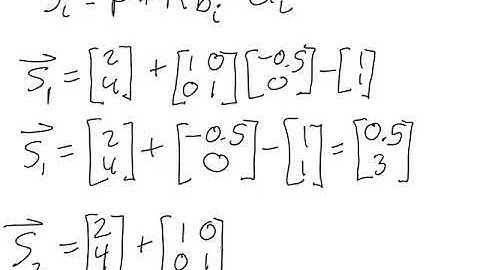 S₁ = [2 4] + [1 0 0 1] [-0.5 0] - [1 1]
S₁ = [2 4] + [-0.5 0] - [1 1] = [0.5 3]
S₂ = [2 4] + [1 0 0 1]